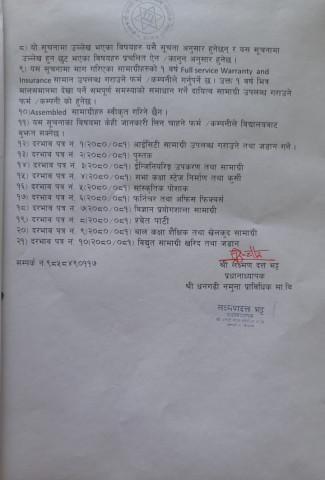 ८) यो सूचनामा उल्लेख भएका बिषयहरु यसै सूचना अनुसार हुनेछन् र यस सूचनामा
उल्लेख हुन छुट भएका बिषयहरु प्रचलित ऐन /कानून अनुसार हुनेछ।
९) यस सूचनामा माग गरिएका सामाग्रीहरुको १ बर्ष Full service Warranty and
Insurance सामान उपलब्ध गराउने फर्म /कम्पनीले गर्नुपर्ने छ । उक्त १ बर्ष भित्र
मालसमानमा देखा पर्ने सम्पूर्ण समस्याको समाधान गर्ने दायित्व सामाग्री उपलब्ध गराउने
फर्म /कम्पनी को हुनेछ।
१०)Assembled सामाग्रीहरु स्वीकृत गरिने छैन ।
११) यस सूचनाका बिषयमा केही जानकारी लिन चाहने फर्म /कम्पनीले विद्यालयबाट
बुझ्न सक्नेछ।
१२) दरभाव पत्र नं. १(२०८०/०८१) आईसीटी सामाग्री उपलब्ध गराउने तथा जडान गर्ने।
१३) दरभाव पत्र नं. २(२०८०/०८१) पुस्तक
१४) दरभाव पत्र नं. ३(२०८०/०८१) ईन्जिनियरिङ्ग उपकरण तथा सामाग्री
१५) दरभाव पत्र नं. ४(२०८०/०८१) सभा कक्षा स्टेज निर्माण तथा कुर्सी
१६) दरभाव पत्र नं. ५(२०८०/०८१) सांस्कृतिक पोशाक
१७) दरभाव पत्र नं. ६(२०८०/०८१) फर्निचर तथा अफिस फिक्चर्स
१८) दरभाव पत्र नं. ७(२०८०/०८१) बिज्ञान प्रयोगशाला सामाग्री
१९) दरभाव पत्र नं. ८(२०८०/०८१) श्वेत पाटी
२०) दरभाव पत्र नं. ९(२०८०/०८१) बाल कक्षा शैक्षिक तथा खेलकुद सामाग्री
२१) दरभाव पत्र नं. १०(२०८०/०८१) बिद्युत सामाग्री खरिद तथा जडान
सम्पर्क नं.९८५८४९०११७
श्री लक्ष्मण दत्त भट्ट
प्रधानाध्यापक
श्री धनगढी नमुना प्राविधिक मा.वि
लक्ष्मणदत्त भट्ट
प्रधानाध्यापक